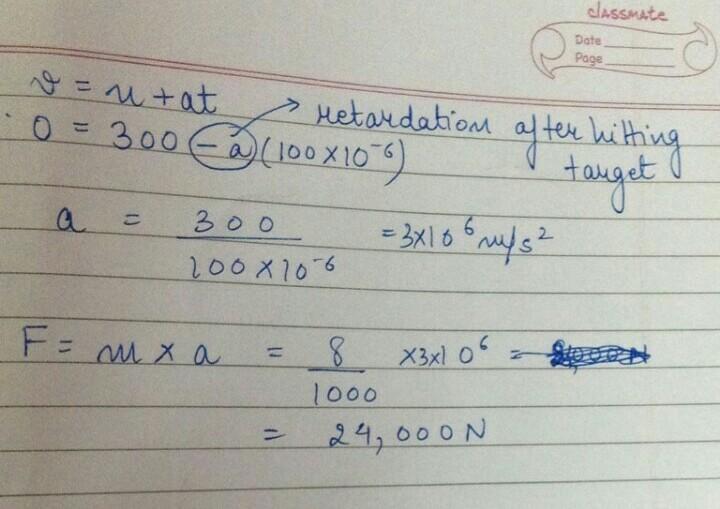 classmate
Date
Page
v = u + at
0 = 300 - a (100×10⁻⁶) → retardation after hitting target
a = 300 / 100×10⁻⁶ = 3×10⁶ m/s²
F = m × a = 8 / 1000 ×3×10⁶ =
= 24,000N